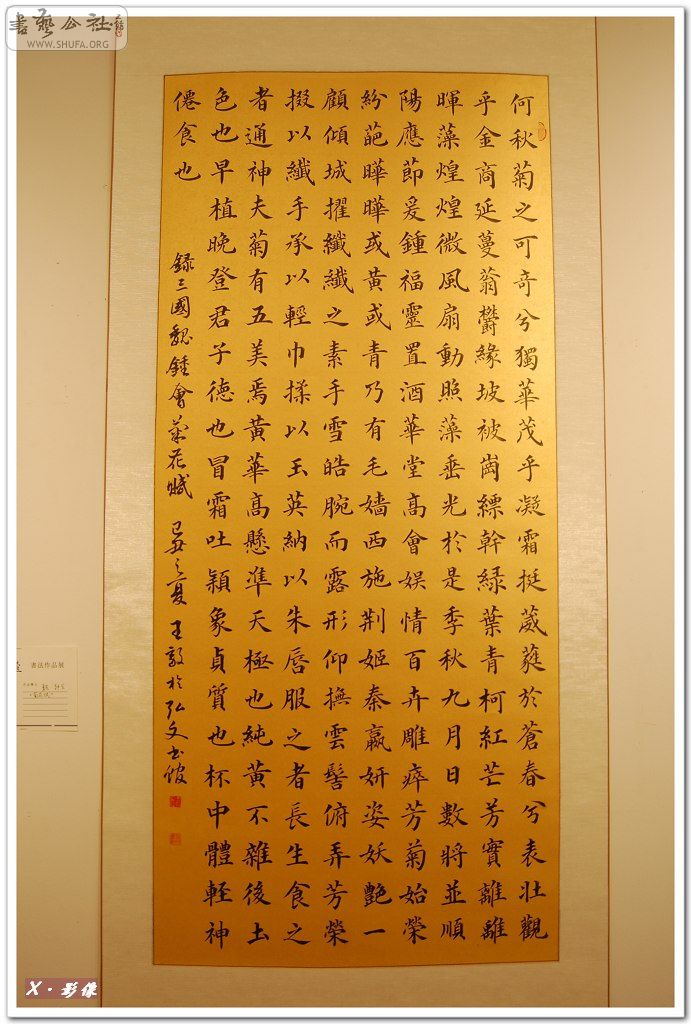 書藝公社
WWW.SHUFA.ORG
何秋菊之可奇兮獨華茂乎凝霜挺葳蕤於蒼春兮表壯觀
乎金商延蔓蓊鬱緣坡被崗縹幹綠葉青柯紅芒芳實離離
暉藻煌煌微風扇動照藻垂光於是季秋九月日數將並順
陽應節爰鍾福靈置酒華堂高會娛情百卉雕瘁芳菊始榮
紛葩曄曄或黃或青乃有毛嬙西施荊姬秦嬴妍姿妖艷一
顧傾城擢纖纖之素手雪皓腕而露形仰撫雲髻俯弄芳榮
掇以纖手承以輕巾揉以玉英納以朱唇服之者長生食之
者通神夫菊有五美焉黃華高懸準天極也純黃不雜後土
色也早植晚登君子德也冒霜吐穎象貞質也杯中體輕神
僊食也
録三國魏鍾會菊花賦 己丑之夏 王於弘文書館
書法作品展
X·影像